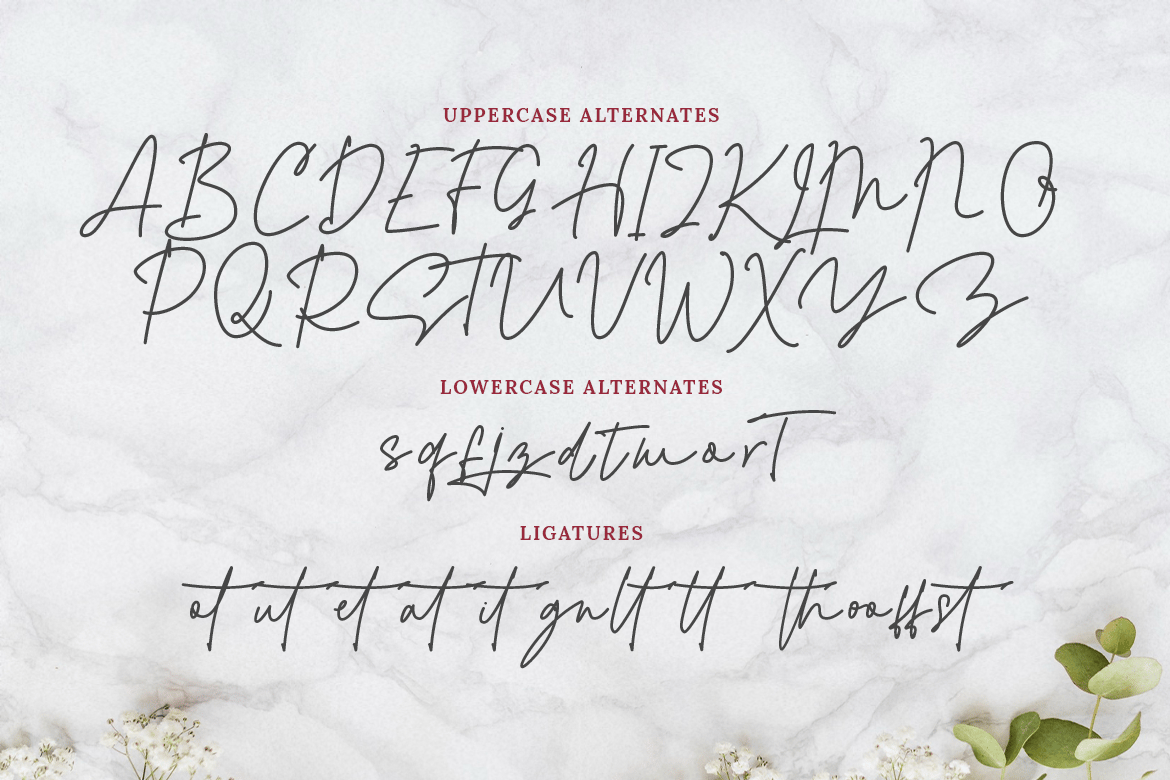 UPPERCASE ALTERNATES
A B C D E F G H I J K L M N O
P Q R S T U V W X Y Z
LOWERCASE ALTERNATES
s q f j z d t m o r T
LIGATURES
ot ut et at it gn lt tt th oo ff st